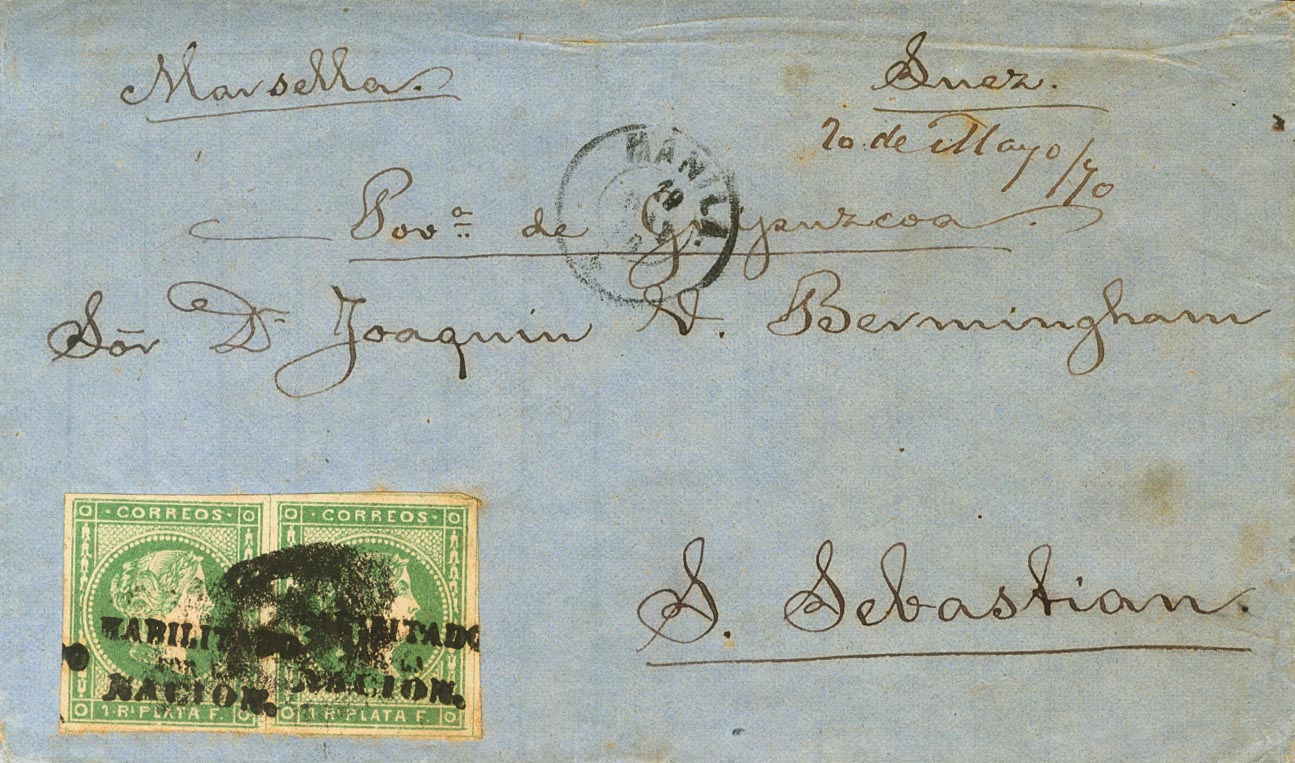 Marsella.
Suez.
20 de Mayo/70
MANILA
Prov.ª de Guypuzcoa.
Sōr Dn Joaquin V. Bermingham
S. Sebastian.
CORREOS
CORREOS
HABILITADO
HABILITADO
POR LA
NACION.
NACION.
1 Rl PLATA F.
1 Rl PLATA F.